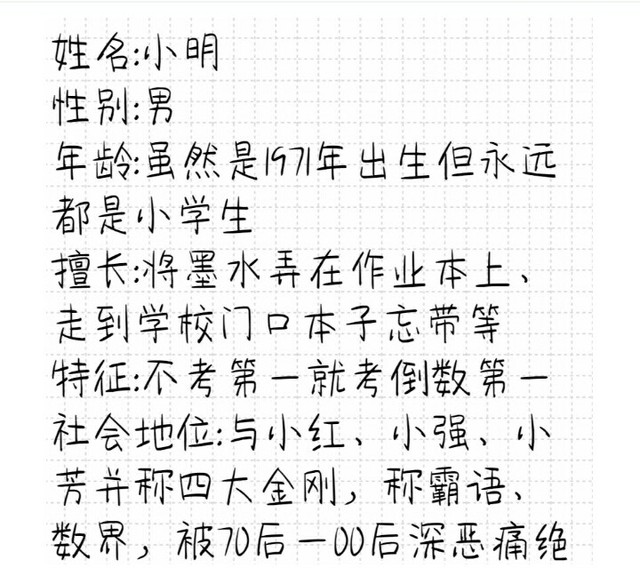 姓名:小明
性别:男
年龄:虽然是1971年出生但永远
都是小学生
擅长:将墨水弄在作业本上、
走到学校门口本子忘带等
特征:不考第一就考倒数第一
社会地位:与小红、小强、小
芳并称四大金刚，称霸语、
数界，被70后一00后深恶痛绝